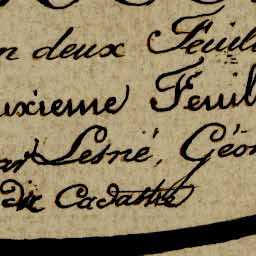 n deux Feuill
uxieme Feuill
ar Lesné, Géom
du Cadastre